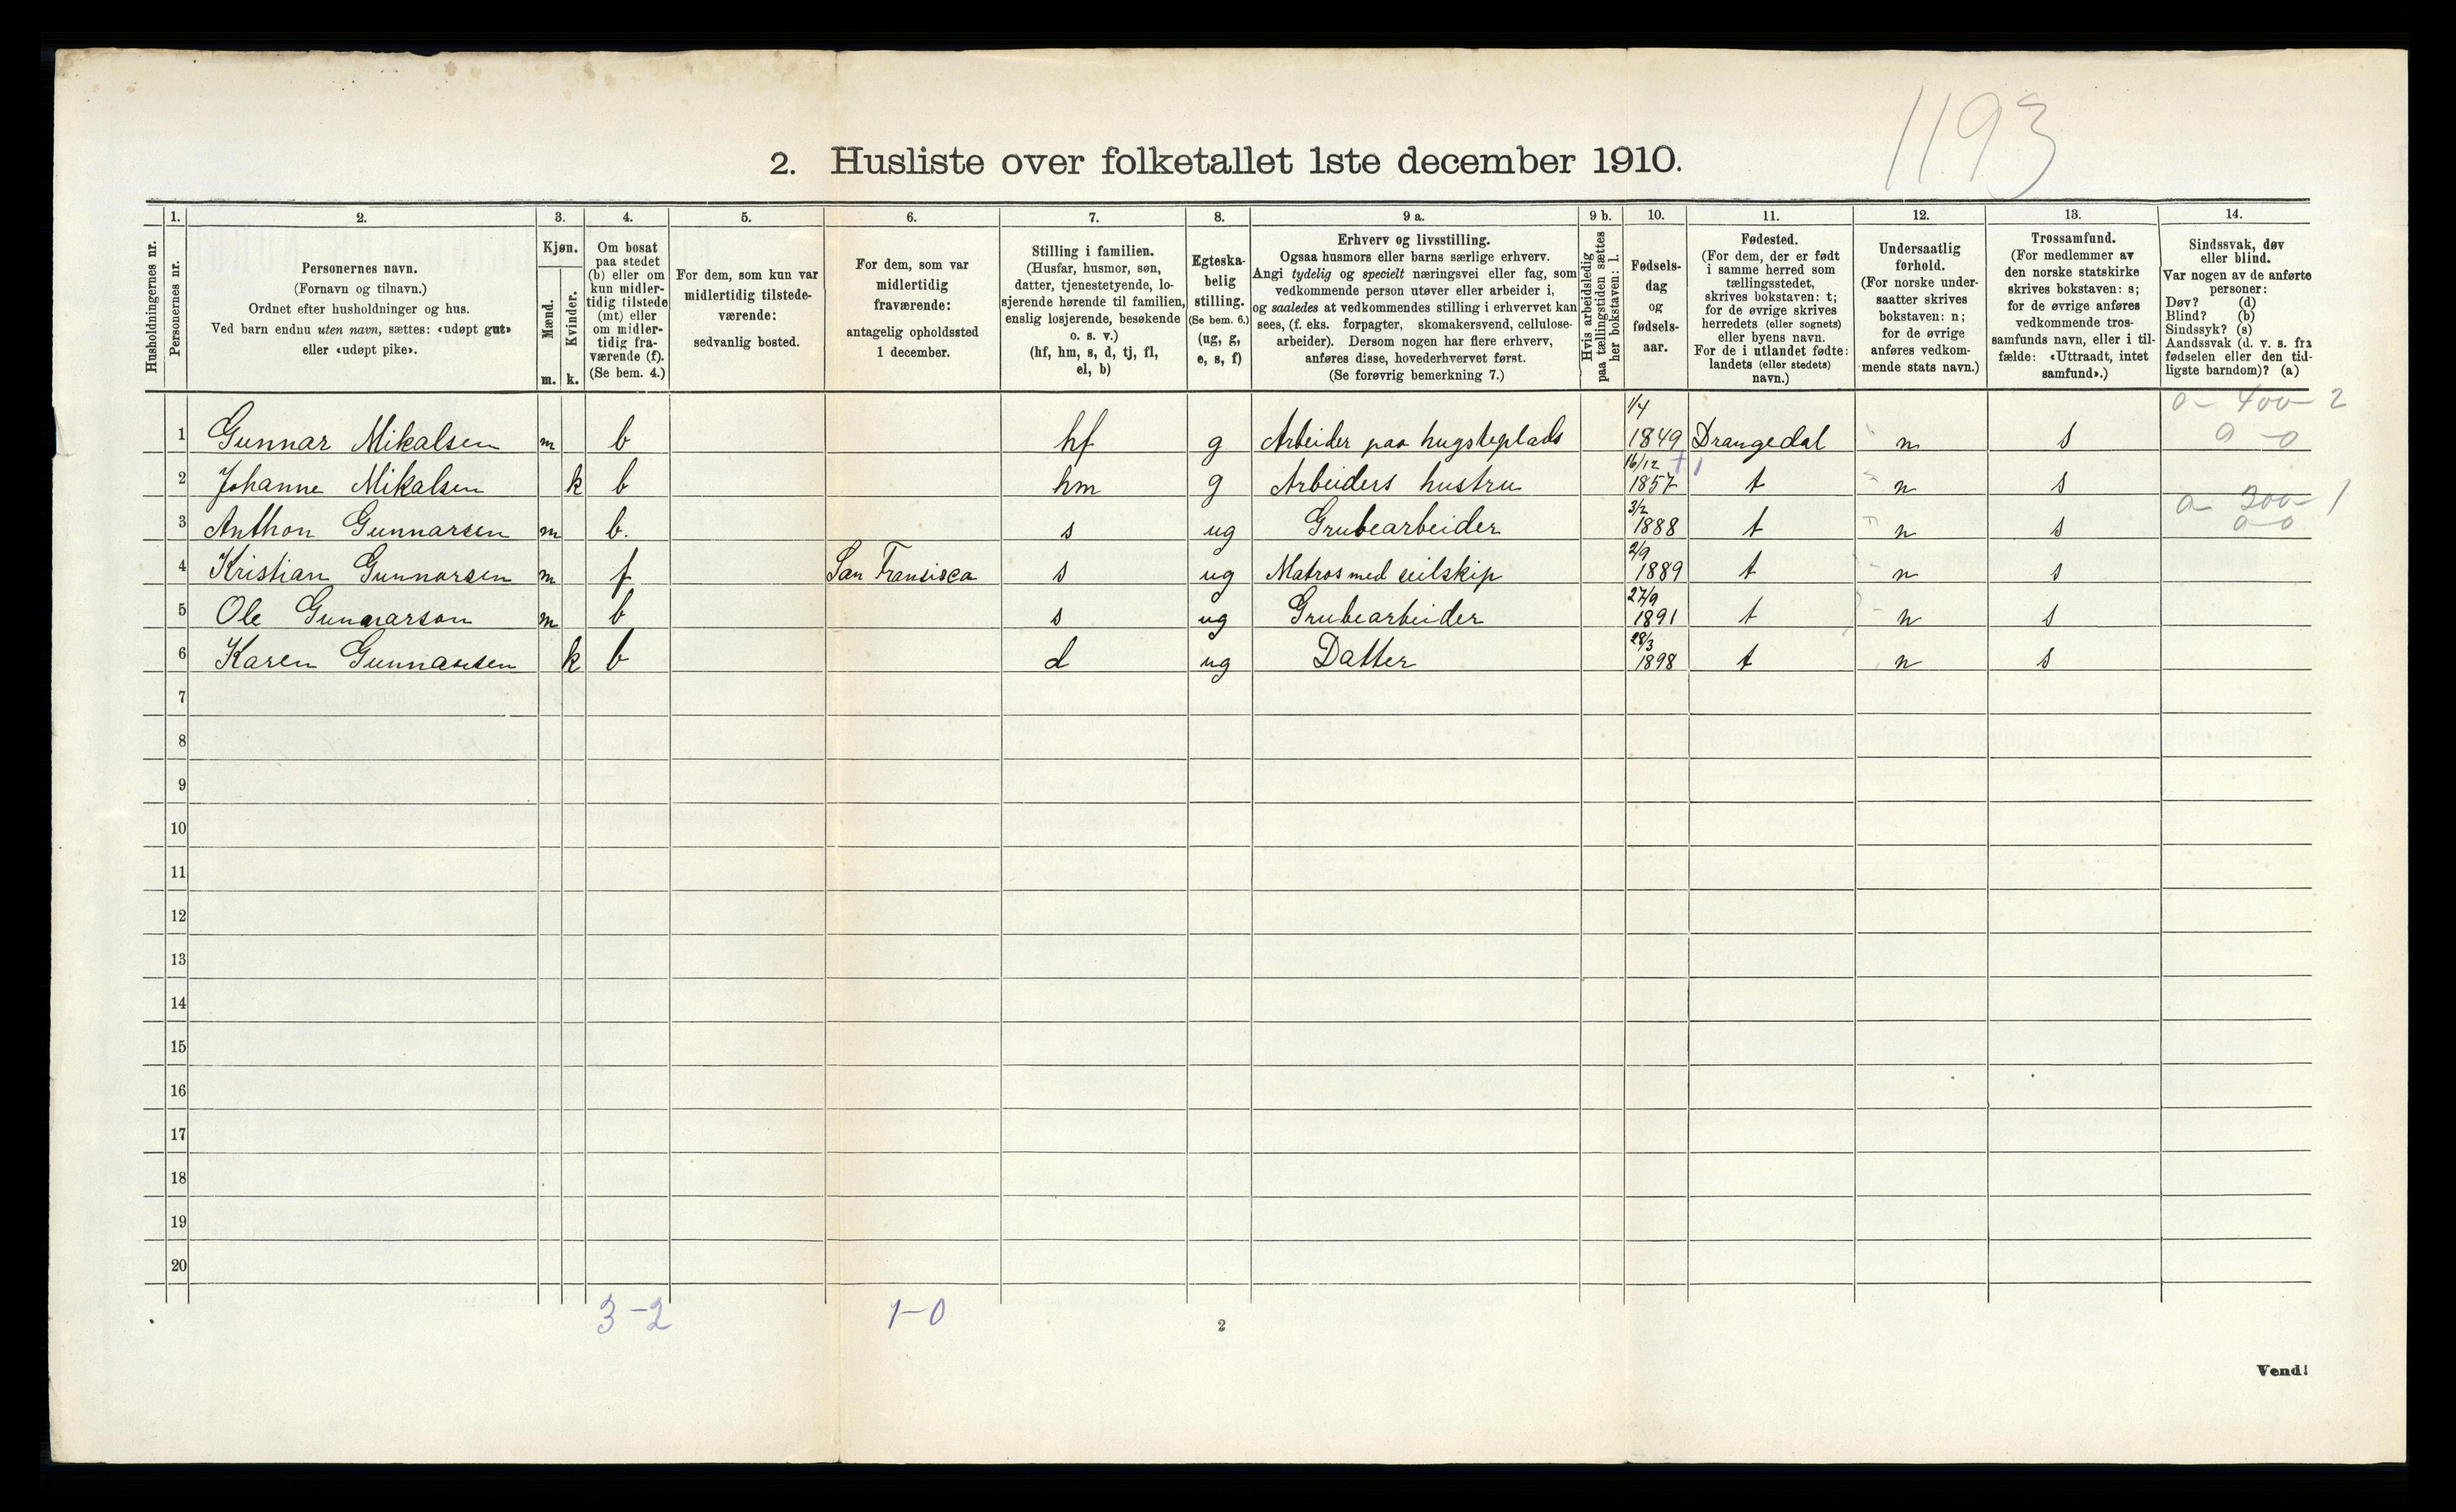 1193
2. Husliste over folketallet 1ste december 1910.
Husholdningernes nr.
1. Personernes nr.
2. Personernes navn.
(Fornavn og tilnavn.)
Ordnet efter husholdninger og hus.
Ved barn endnu uten navn, sættes: «udøpt gut»
eller «udøpt pike».
3. Kjøn.
Mænd. m.
Kvinder. k.
4. Om bosat
paa stedet
(b) eller om
kun midler-
tidig tilstede
(mt) eller
om midler-
tidig fra-
værende (f).
(Se bem. 4.)
5. For dem, som kun var
midlertidig tilstede-
værende:
sedvanlig bosted.
6. For dem, som var
midlertidig
fraværende:
antagelig opholdssted
1 december.
7. Stilling i familien.
(Husfar, husmor, søn,
datter, tjenestetyende, lo-
sjerende hørende til familien,
enslig losjerende, besøkende
o. s. v.)
(hf, hm, s, d, tj, fl,
el, b)
8. Egteska-
belig
stilling.
(Se bem. 6.)
(ug, g,
e, s, f)
9 a. Erhverv og livsstilling.
Ogsaa husmors eller barns særlige erhverv.
Angi tydelig og specielt næringsvei eller fag, som
vedkommende person utøver eller arbeider i,
og saaledes at vedkommendes stilling i erhvervet kan
sees, (f. eks. forpagter, skomakersvend, cellulose-
arbeider). Dersom nogen har flere erhverv,
anføres disse, hovederhvervet først.
(Se forøvrig bemerkning 7.)
9 b. Hvis arbeidsledig
paa tællingstiden sættes
her bokstaven: l.
10. Fødsels-
dag
og
fødsels-
aar.
11. Fødested.
(For dem, der er født
i samme herred som
tællingsstedet,
skrives bokstaven: t;
for de øvrige skrives
herredets (eller sognets)
eller byens navn.
For de i utlandet fødte:
landets (eller stedets)
navn.)
12. Undersaatlig
forhold.
(For norske under-
saatter skrives
bokstaven: n;
for de øvrige
anføres vedkom-
mende stats navn.)
13. Trossamfund.
(For medlemmer av
den norske statskirke
skrives bokstaven: s;
for de øvrige anføres
vedkommende tros-
samfunds navn, eller i til-
fælde: «Uttraadt, intet
samfund».)
14. Sindssvak, døv
eller blind.
Var nogen av de anførte
personer:
Døv? (d)
Blind? (b)
Sindssyk? (s)
Aandssvak (d. v. s. fra
fødselen eller den tid-
ligste barndom)? (a)
1 Gunnar Mikalsen m b hf g Arbeider paa hugsteplads 1/4 1849 Drangedal n s 0 - 400 - 2 0 - 0
2 Johanne Mikalsen k b hm g Arbeiders hustru 16/12 1857 t n s
3 Anthon Gunnarsen m b. s ug Grubearbeider 3/2 1888 t n s 300 - 1 0-0
4 Kristian Gunnarsen m f San Fransisca s ug Matros med seilskip 2/9 1889 t n s
5 Ole Gunnarson m b s ug Grubearbeider 27/9 1891 t n s
6 Karen Gunnarsen k b d ug Datter 28/3 1898 t n s
7
8
9
10
11
12
13
14
15
16
17
18
19
20
3-2 1-0
2
Vend!